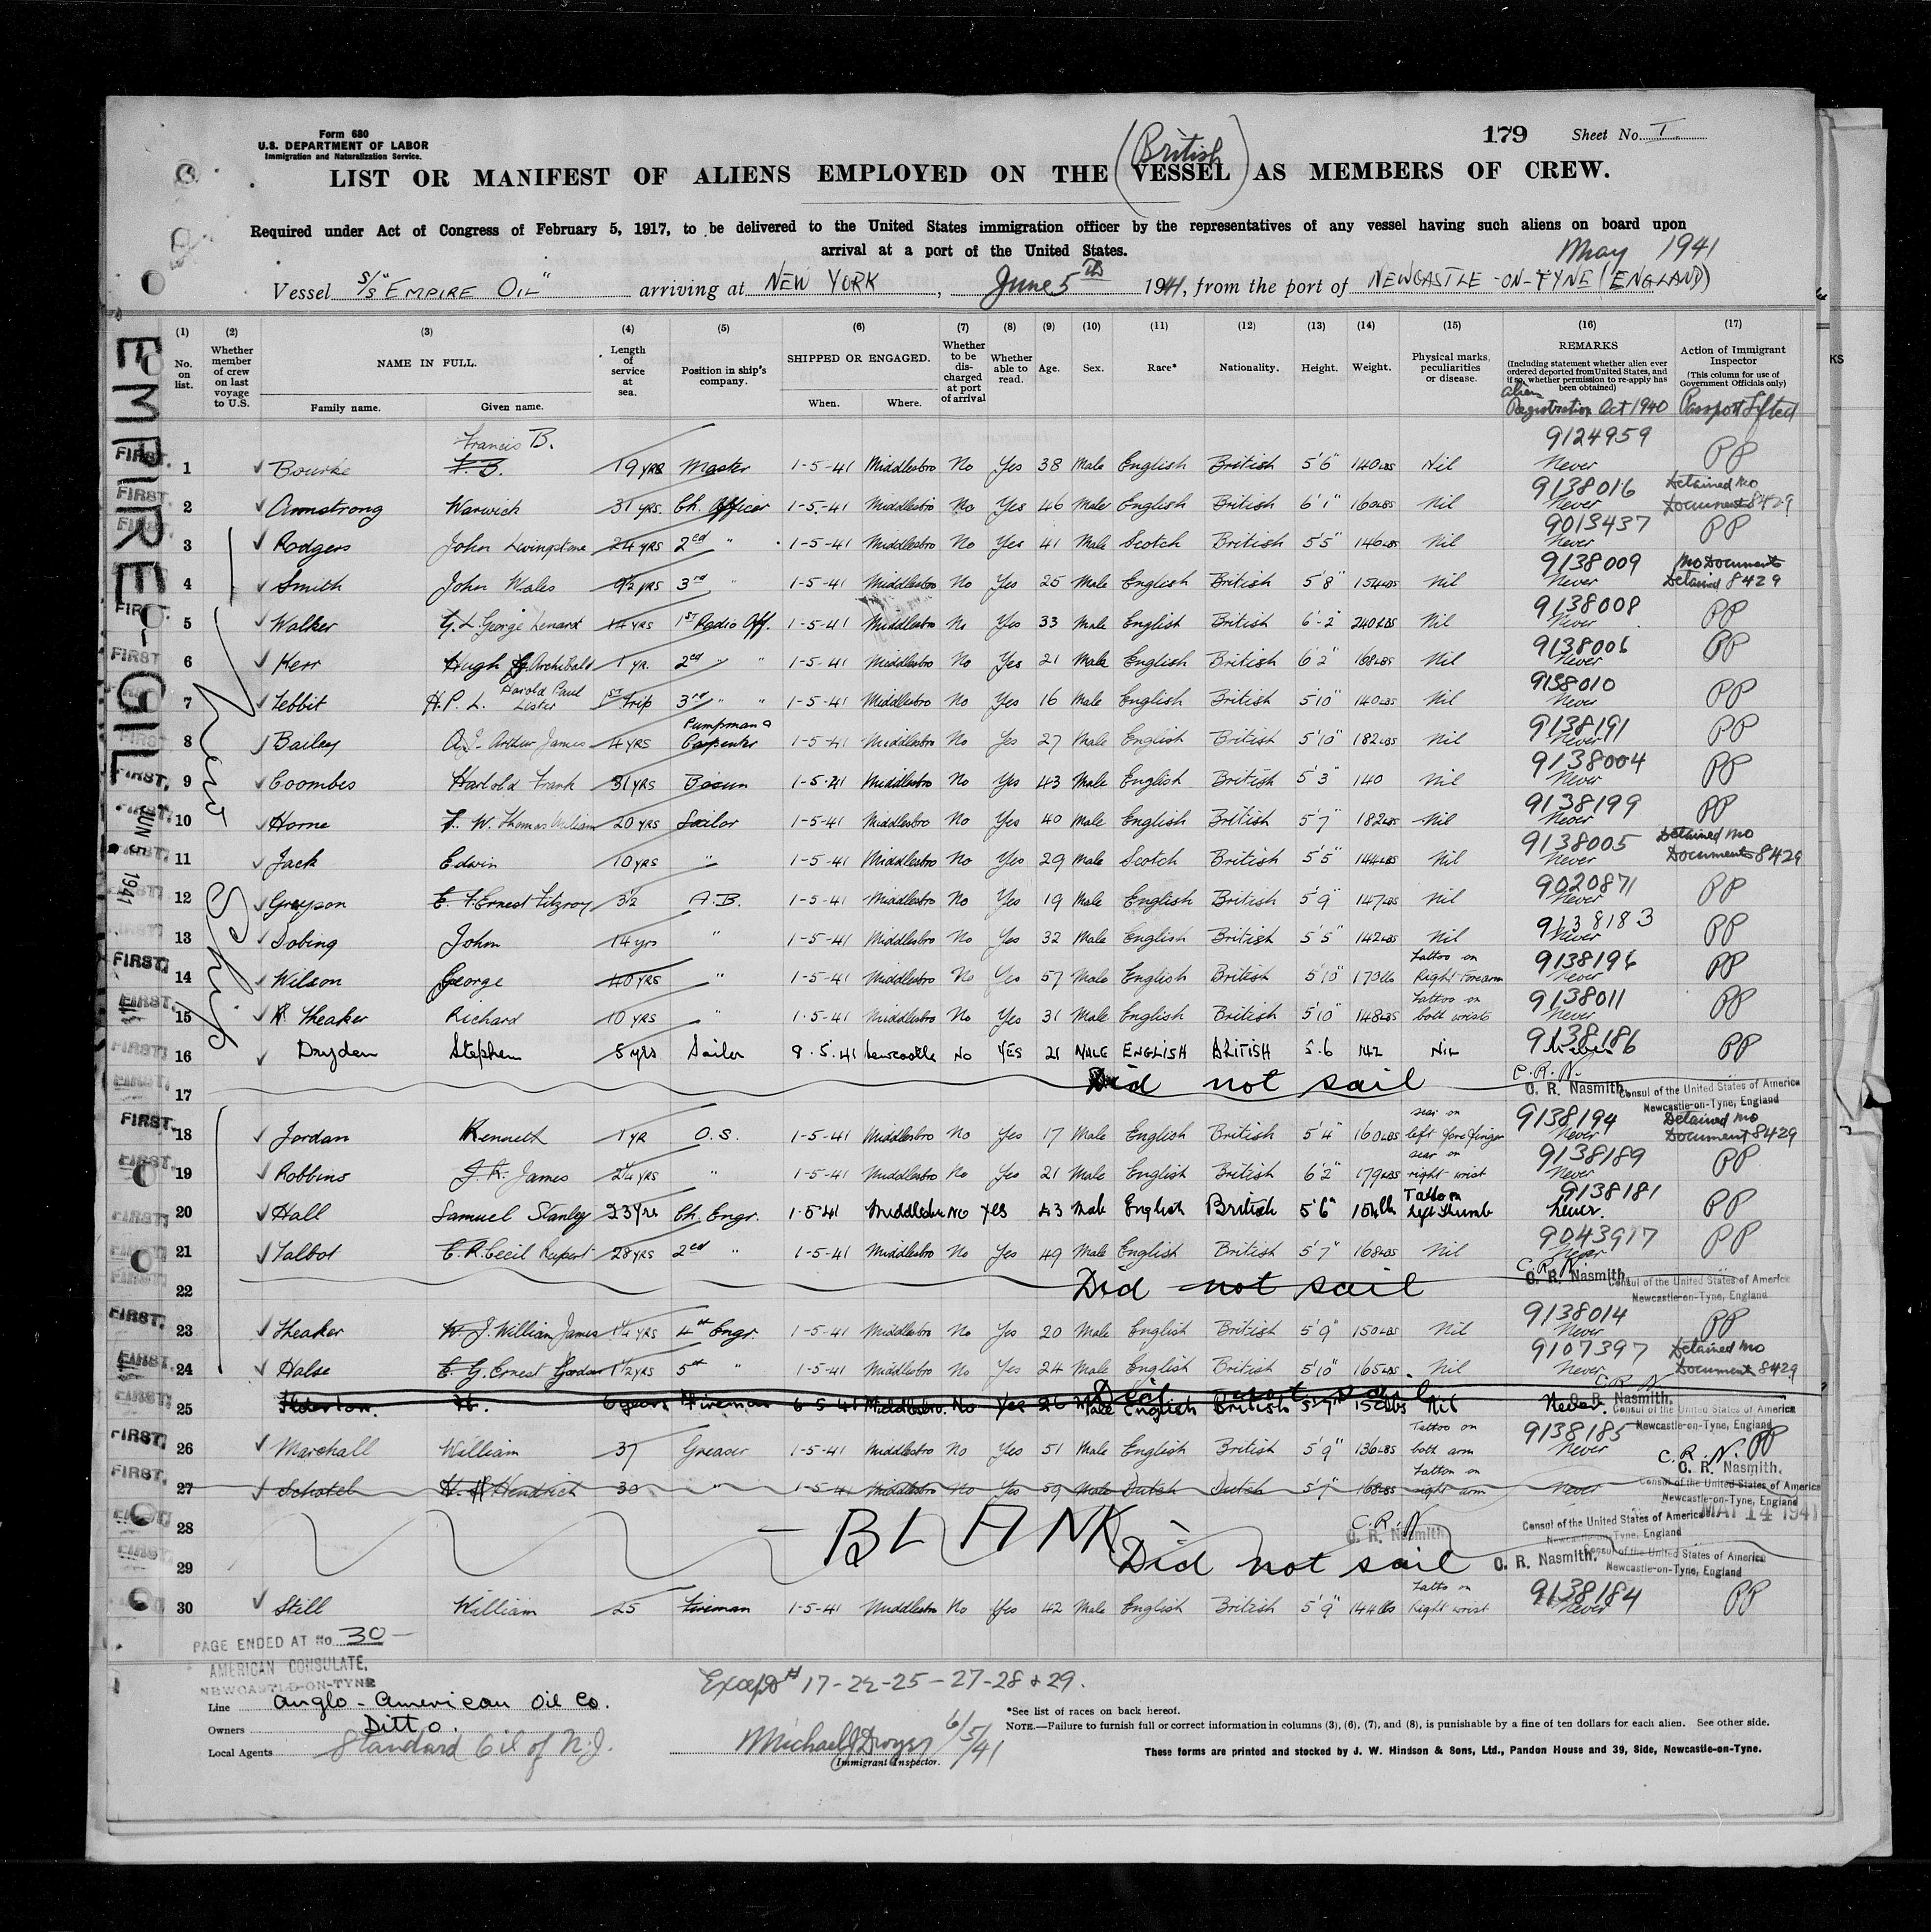 Form 680
U.S. DEPARTMENT OF LABOR
Immigration and Naturalization Service.
179 Sheet No. I.
(British)
LIST OR MANIFEST OF ALIENS EMPLOYED ON THE VESSEL AS MEMBERS OF CREW.
Required under Act of Congress of February 5, 1917, to be delivered to the United States immigration officer by the representatives of any vessel having such aliens on board upon
arrival at a port of the United States.
May 1941
Vessel S/S "EMPIRE OIL" arriving at NEW YORK, June 5th 1941, from the port of NEWCASTLE-ON-TYNE (ENGLAND)
(1) (2) (3) (4) (5) (6) (7) (8) (9) (10) (11) (12) (13) (14) (15) (16) (17)
No. on list. Whether member of crew on last voyage to U.S. NAME IN FULL. Length of service at sea. Position in ship's company. SHIPPED OR ENGAGED. Whether to be discharged at port of arrival Whether able to read. Age. Sex. Race* Nationality. Height. Weight. Physical marks, peculiarities or disease. REMARKS (Including statement whether alien ever ordered deported from United States, and if so, whether permission to re-apply has been obtained) Action of Immigrant Inspector (This column for use of Government Officials only)
Family name. Given name. When. Where. Alien Registration Oct 1940 Passport Lifted
EMPIRE-OIL
JUN 5 1941
New Ship
1 Bourke F. B. Francis B. 19 YRS Master 1-5-41 Middlesbro No Yes 38 Male English British 5'6" 140 LBS Nil 9124959 Never PP
2 Armstrong Warwick 31 YRS. Ch. Officer 1-5-41 Middlesbro No Yes 46 Male English British 6'1" 160 LBS Nil 9138016 Never Detained No Documents 8429
3 Rodgers John Livingstone 24 YRS 2nd " 1-5-41 Middlesbro No Yes 41 Male Scotch British 5'5" 146 LBS Nil 9013437 Never PP
4 Smith John Wales 9½ YRS 3rd " 1-5-41 Middlesbro No Yes 25 Male English British 5'8" 154 LBS Nil 9138009 Never No Documents Detained 8429
5 Walker G. L. George Lenard 14 YRS 1ST Radio Off. 1-5-41 Middlesbro No Yes 33 Male English British 6'-2 240 LBS Nil 9138008 Never PP
6 Kerr Hugh Archibald 1 YR. 2nd " " 1-5-41 Middlesbro No Yes 21 Male English British 6'2" 168 LBS Nil 9138006 Never PP
7 Tebbit H. P. L. Harold Paul Lister 1ST trip 3rd " " 1-5-41 Middlesbro No Yes 16 Male English British 5'10" 140 LBS Nil 9138010 Never PP
8 Bailey A. J. Arthur James 4 YRS Pumpman & Carpenter 1-5-41 Middlesbro No Yes 27 Male English British 5'10" 182 LBS Nil 9138191 Never PP
9 Coombes Harold Frank 31 YRS Bosun 1-5-41 Middlesbro No Yes 43 Male English British 5'3" 140 Nil 9138004 Never PP
10 Horne T. W. Thomas William 20 YRS Sailor 1-5-41 Middlesbro No Yes 40 Male English British 5'7" 182 LBS Nil 9138199 Never PP
11 Jack Edwin 10 YRS " 1-5-41 Middlesbro No Yes 29 Male Scotch British 5'5" 144 LBS Nil 9138005 Never Detained No Documents 8429
12 Grayson E. F. Ernest Fitzroy 3½ A.B. 1-5-41 Middlesbro No Yes 19 Male English British 5'9" 147 LBS Nil 9020871 Never PP
13 Dobing John 14 yrs " 1-5-41 Middlesbro No Yes 32 Male English British 5'5" 142 LBS Nil 9138183 Never PP
14 Wilson George 40 YRS " 1-5-41 Middlesbro No Yes 57 Male English British 5'10" 173 lb Tattoo on Right Forearm 9138196 Never PP
15 Theaker Richard 10 YRS " 1-5-41 Middlesbro No Yes 31 Male English British 5'10" 148 LBS Tattoo on both wrists 9138011 Never PP
16 Dryden Stephen 5 yrs Sailor 9.5.41 Newcastle No YES 21 MALE ENGLISH BRITISH 5.6 142 Nil 9138186 Never PP
17 Did not sail C.R.N. C. R. Nasmith, Consul of the United States of America Newcastle-on-Tyne, England
18 Jordan Kenneth 1 YR O.S. 1-5-41 Middlesbro No Yes 17 Male English British 5'4" 160 LBS scar on left fore finger 9138194 Never Detained No Document 8429
19 Robbins J. K. James 2¼ YRS " 1-5-41 Middlesbro No Yes 21 Male English British 6'2" 179 LBS scar on right wrist 9138189 Never PP
20 Hall Samuel Stanley 23 Yrs Ch. Engr. 1-5-41 Middlesbro No Yes 43 Male English British 5'6" 154 lb Tattoo on left thumb 9138181 Never. PP
21 Talbot C. R. Cecil Rupert 28 YRS 2nd " 1-5-41 Middlesbro No Yes 49 Male English British 5'7" 168 LBS Nil 9043917 Never PP
22 Did not sail C.R.N. C. R. Nasmith, Consul of the United States of America Newcastle-on-Tyne, England
23 Theaker W. J. William James 1¼ YRS 4th Engr. 1-5-41 Middlesbro No Yes 20 Male English British 5'9" 150 LBS Nil 9138014 Never PP
24 Halse E. G. Ernest Gordon 1½ YRS 5th " 1-5-41 Middlesbro No Yes 24 Male English British 5'10" 165 LBS. Nil 9107397 Never Detained No Document 8429
25 H. 6 years Fireman 6-5-41 Middlesbro. No Yes 26 Male English British 5'7" Nil Never. Did not sail C.R.N. C. R. Nasmith, Consul of the United States of America Newcastle-on-Tyne, England
26 Marshall William 37 Greaser 1-5-41 Middlesbro No Yes 51 Male English British 5'9" 136 LBS Tattoo on both arm 9138185 Never PP
27 Schotel H. H Hendrick 30 " 1-5-41 Middlesbro No Yes 59 Male Dutch Dutch 5'7" 168 LBS Tattoo on right arm Never C.R.N. C. R. Nasmith, Consul of the United States of America Newcastle-on-Tyne, England
28 - BLANK C.R.N. C. R. Nasmith Consul of the United States of America Newcastle-on-Tyne, England MAY 14 1941
29 Did not sail C. R. Nasmith. Consul of the United States of America Newcastle-on-Tyne, England
30 Still William 25 Fireman 1-5-41 Middlesbro No Yes 42 Male English British 5'9" 144 lbs Tatto on Right wrist 9138184 Never PP
PAGE ENDED AT No 30-
AMERICAN CONSULATE,
NEWCASTLE-ON-TYNE
Except # 17-22-25-27-28 & 29.
Line Anglo-American Oil Co.
Owners Ditto.
Local Agents Standard Oil of N.J.
Michael J Dwyer 6/5/41
Immigrant Inspector.
*See list of races on back hereof.
NOTE.—Failure to furnish full or correct information in columns (3), (6), (7), and (8), is punishable by a fine of ten dollars for each alien. See other side.
These forms are printed and stocked by J. W. Hindson & Sons, Ltd., Pandon House and 39, Side, Newcastle-on-Tyne.